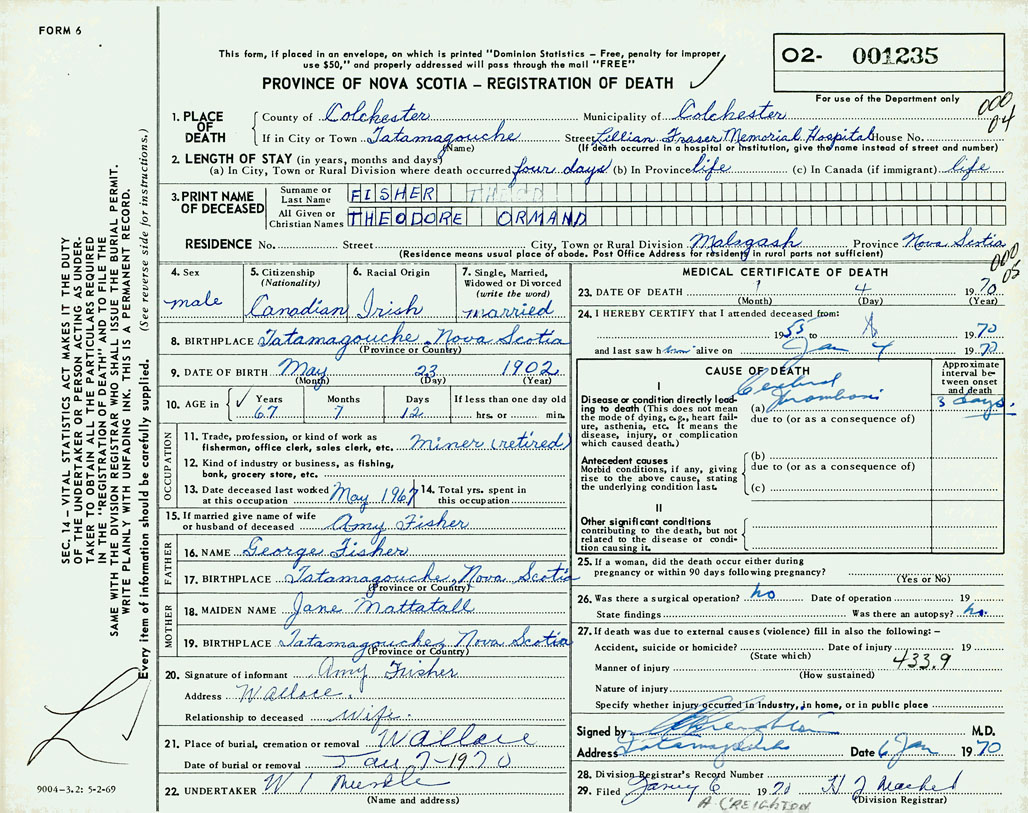 FORM 6
This form, if placed in an envelope, on which is printed "Dominion Statistics – Free, penalty for improper
use $50," and properly addressed will pass through the mail "FREE"
PROVINCE OF NOVA SCOTIA – REGISTRATION OF DEATH
02- 001235
For use of the Department only
000
04
1. PLACE OF DEATH
County of Colchester Municipality of Colchester
If in City or Town Tatamagouche Street Lillian Fraser Memorial Hospital House No.
(Name) (If death occurred in a hospital or institution, give the name instead of street and number)
2. LENGTH OF STAY (in years, months and days)
(a) In City, Town or Rural Division where death occurred four days (b) In Province life (c) In Canada (if immigrant) life
3. PRINT NAME OF DECEASED
Surname or Last Name FISHER THEOD
All Given or Christian Names THEODORE ORMAND
RESIDENCE No. Street City, Town or Rural Division Malagash Province Nova Scotia
(Residence means usual place of abode. Post Office Address for residents in rural parts not sufficient)
000
05
4. Sex
male
5. Citizenship
(Nationality)
Canadian
6. Racial Origin
Irish
7. Single, Married,
Widowed or Divorced
(write the word)
married
8. BIRTHPLACE Tatamagouche, Nova Scotia
(Province or Country)
9. DATE OF BIRTH May 23 1902
(Month) (Day) (Year)
10. AGE in Years Months Days If less than one day old
67 7 12 hrs. or min.
OCCUPATION
11. Trade, profession, or kind of work as
fisherman, office clerk, sales clerk, etc. Miner (retired)
12. Kind of industry or business, as fishing,
bank, grocery store, etc.
13. Date deceased last worked
at this occupation May 1967
14. Total yrs. spent in
this occupation
15. If married give name of wife
or husband of deceased Amy Fisher
FATHER
16. NAME George Fisher
17. BIRTHPLACE Tatamagouche, Nova Scotia
(Province or Country)
MOTHER
18. MAIDEN NAME Jane Mattatall
19. BIRTHPLACE Tatamagouche, Nova Scotia
(Province or Country)
20. Signature of informant Amy Fisher
Address Wallace.
Relationship to deceased Wife.
21. Place of burial, cremation or removal Wallace
Date of burial or removal Jan 7-1970
22. UNDERTAKER W
(Name and address)
MEDICAL CERTIFICATE OF DEATH
23. DATE OF DEATH 1 4 1970
(Month) (Day) (Year)
24. I HEREBY CERTIFY that I attended deceased from:
1955 to 1970
and last saw h alive on Jan 4 1970
CAUSE OF DEATH
Approximate
interval be-
tween onset
and death
I
Disease or condition directly lead-
ing to death (This does not mean
the mode of dying, e.g., heart fail-
ure, asthenia, etc. It means the
disease, injury, or complication
which caused death.)
(a) Cerebral Thrombosis
3 days.
due to (or as a consequence of)
Antecedent causes
Morbid conditions, if any, giving
rise to the above cause, stating
the underlying condition last.
(b)
due to (or as a consequence of)
(c)
II
Other significant conditions
contributing to the death, but not
related to the disease or condi-
tion causing it.
25. If a woman, did the death occur either during
pregnancy or within 90 days following pregnancy?
(Yes or No)
26. Was there a surgical operation? no Date of operation 19
State findings Was there an autopsy? no.
27. If death was due to external causes (violence) fill in also the following: –
Accident, suicide or homicide? Date of injury 19
(State which)
433.9
Manner of injury
(How sustained)
Nature of injury
Specify whether injury occurred in industry, in home, or in public place
Signed by M.D.
Address Tatamagouche Date 6 Jan 1970
28. Division Registrar's Record Number
29. Filed 6 1970
(Division Registrar)
A CREIGHTON
SEC. 14 – VITAL STATISTICS ACT MAKES IT THE DUTY
OF THE UNDERTAKER OR PERSON ACTING AS UNDER-
TAKER TO OBTAIN ALL THE PARTICULARS REQUIRED
IN THE "REGISTRATION OF DEATH" AND TO FILE THE
SAME WITH THE DIVISION REGISTRAR WHO SHALL ISSUE THE BURIAL PERMIT.
WRITE PLAINLY WITH UNFADING INK. THIS IS A PERMANENT RECORD.
Every item of information should be carefully supplied. (See reverse side for instructions.)
9004-3.2: 5-2-69